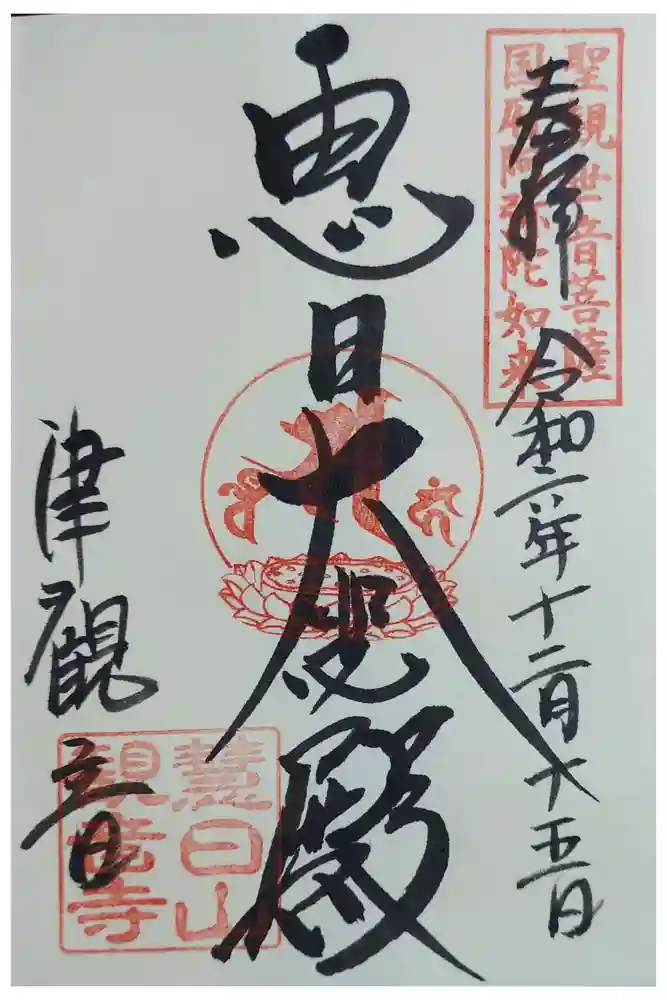 聖観世音菩薩
国府阿弥陀如来
奉拝 令和六年十二月十五日
恵日大悲殿
津觀音
慧日山
観音寺